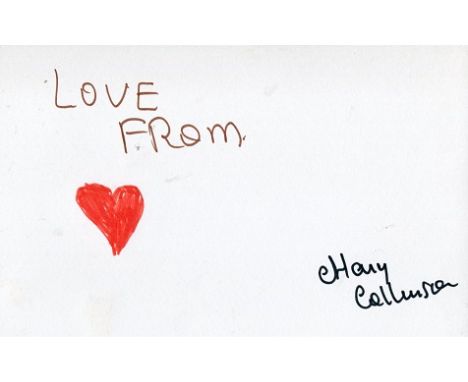 LOVE
FROM.
Mary
Collinson